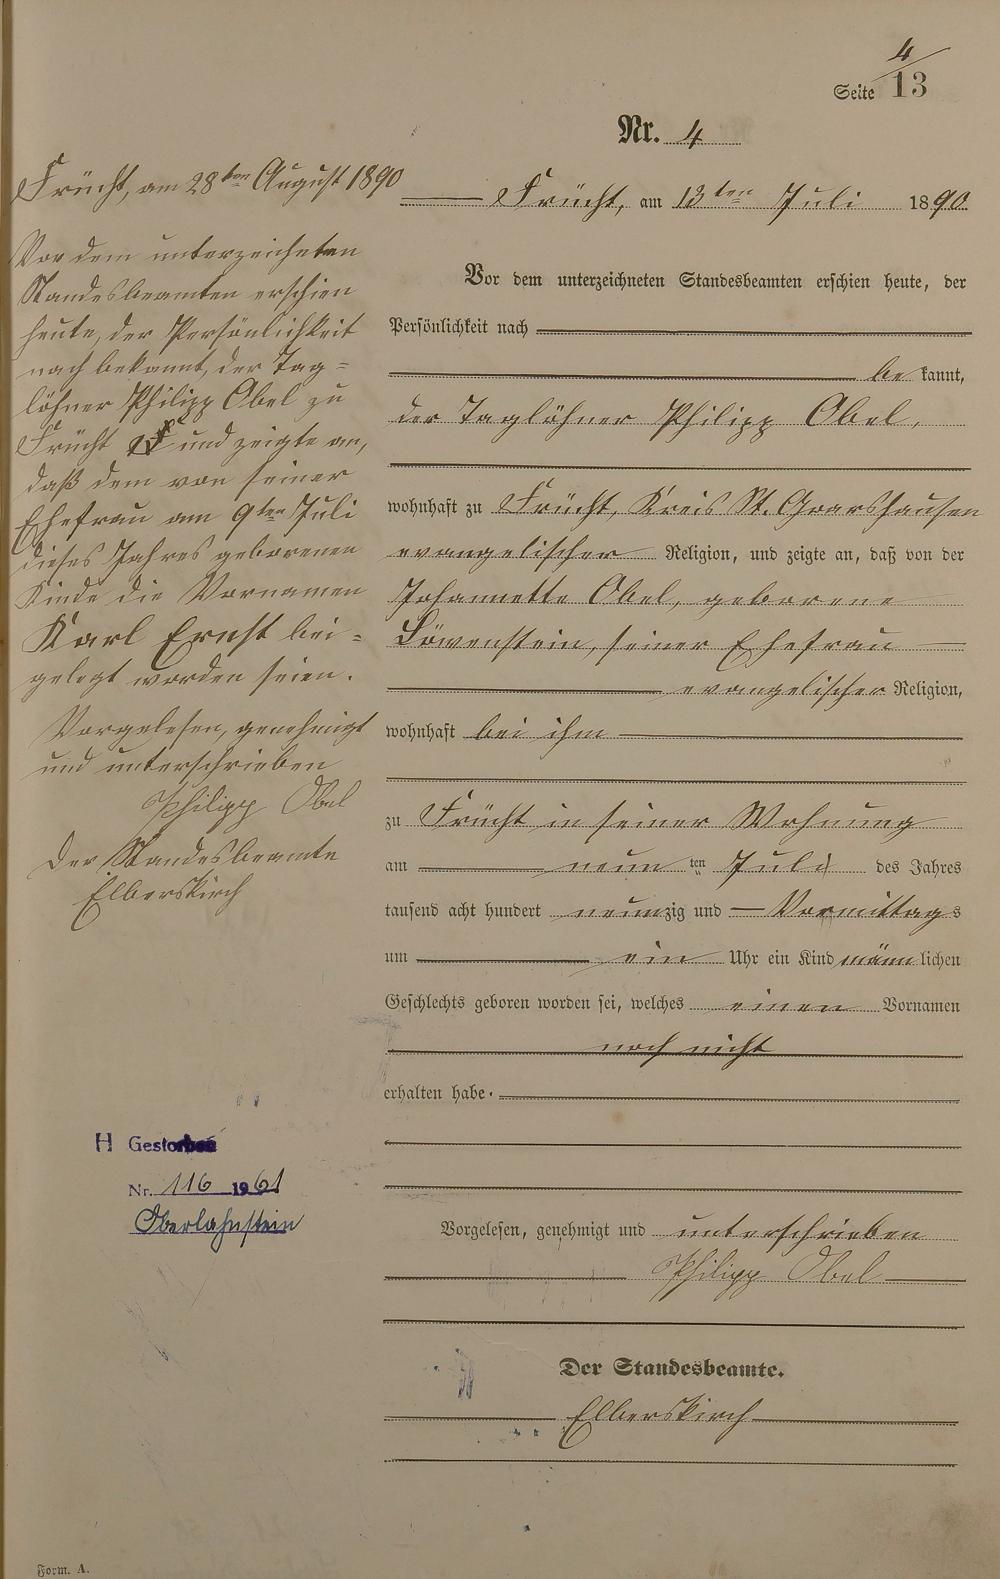 4
Seite 13
Nr. 4
Frücht, am 28ten August 1890
Vor dem unterzeichneten
Standesbeamten erschien
heute, der Persönlichkeit
nach bekannt, der Tag=
löhner Philipp Obel zu
Frücht und zeigte an,
daß dem von seiner
Ehefrau am 9ten Juli
dieses Jahres geborenen
Kinde die Vornamen
Karl Ernst bei=
gelegt worden seien.
Vorgelesen, genehmigt
und unterschrieben
Philipp Obel
Der Standesbeamte
Elberskirch
H Gestorben
Nr. 116 1961
Oberlahnstein
Frücht, am 13ten Juli 1890
Vor dem unterzeichneten Standesbeamten erschien heute, der
Persönlichkeit nach
be kannt,
der Taglöhner Philipp Obel,
wohnhaft zu Frücht, Kreis St. Goarshausen
evangelischer Religion, und zeigte an, daß von der
Johannette Obel, geborene
Löwenstein, seiner Ehefrau
evangelischer Religion,
wohnhaft bei ihm
zu Frücht in seiner Wohnung
am neun ten Juli des Jahres
tausend acht hundert neunzig und Vormittags
um ein Uhr ein Kind männlichen
Geschlechts geboren worden sei, welches einen Vornamen
noch nicht
erhalten habe.
Vorgelesen, genehmigt und unterschrieben
Philipp Obel
Der Standesbeamte.
Elberskirch
Form. A.